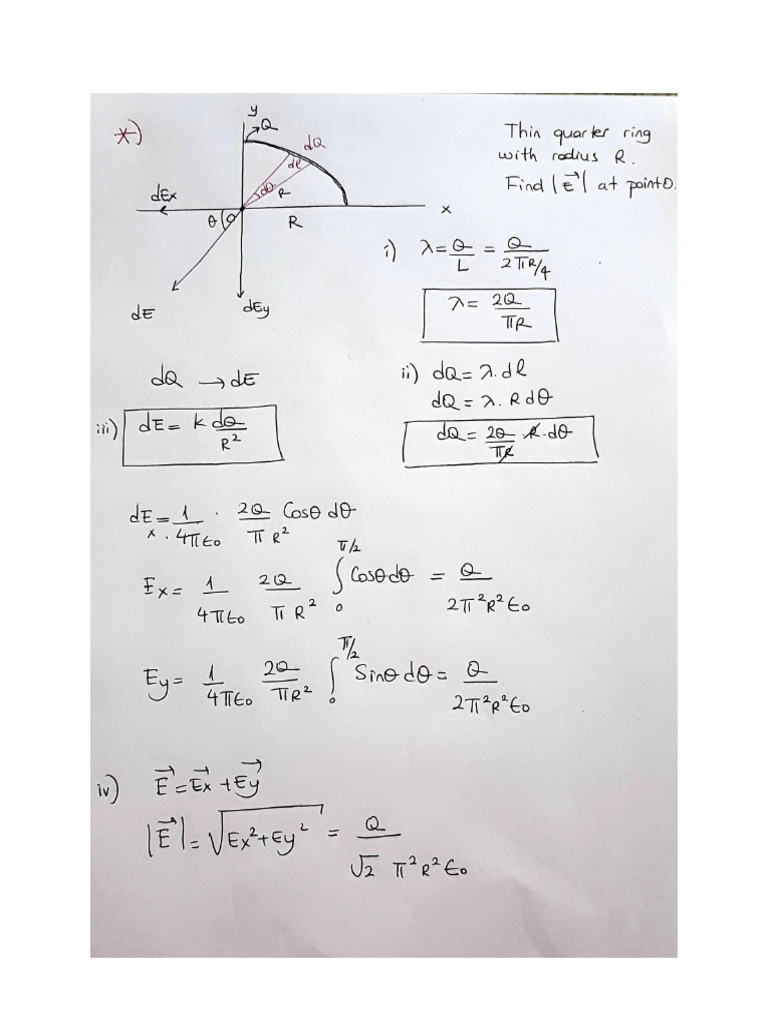 *)
y
Q
dQ
dl
dθ
R
dEx
θ
R
x
dE
dEy
Thin quarter ring
with radius R.
Find |E⃗| at point O.
i) λ = Q/L = Q/(2πR/4)
λ = 2Q/πR
dQ → dE
ii) dQ = λ.dl
dQ = λ.Rdθ
iii) dE = k dQ/R²
dQ = 2Q/πR R.dθ
dEx = 1/4πϵ0 . 2Q/πR² Cosθ dθ
Ex = 1/4πϵ0 2Q/πR² ∫₀^π/2 Cosθdθ = Q/2π²R²ϵ0
Ey = 1/4πϵ0 2Q/πR² ∫₀^π/2 Sinθdθ = Q/2π²R²ϵ0
iv) E⃗ = E⃗x + E⃗y
|E⃗| = √(Ex² + Ey²) = Q/√2 π²R²ϵ0